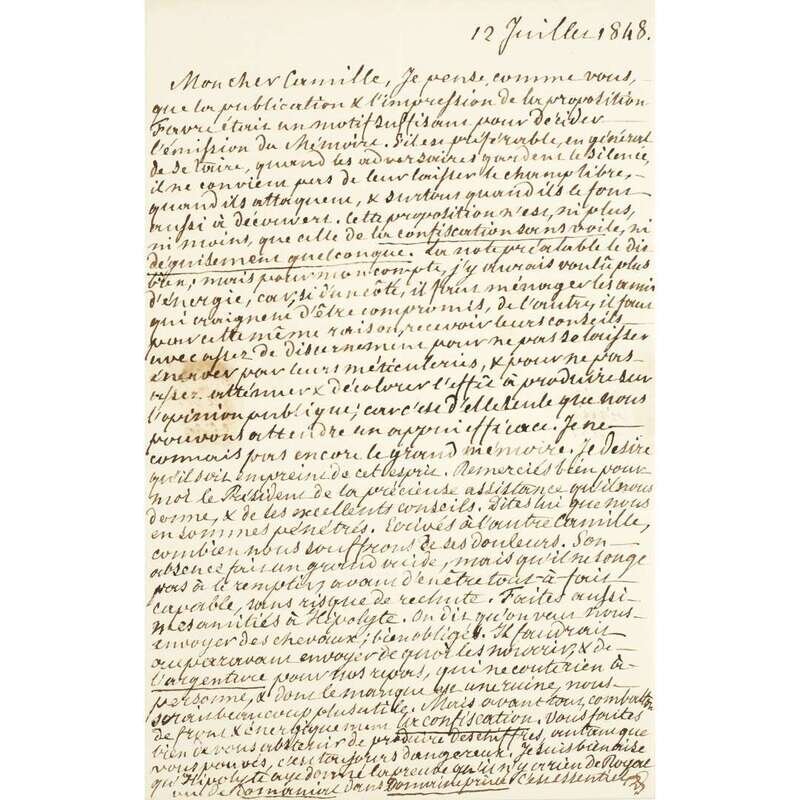 12 Juillet 1848.
Mon cher Camille, Je pense, comme vous,
que la publication & l'impression de la proposition
Favre était un motif suffisant pour décider
l'émission du Mémoire. S'il est préférable, en général
de se taire, quand les adversaires gardent le silence,
il ne convient pas de leur laisser le champ libre,
quand ils attaquent, & surtout quand ils le font
aussi à découvert. Cette proposition n'est, ni plus,
ni moins, que celle de la confiscation sans voile, ni
déguisement quelconque. La note préalable le dit
bien; mais pour mon compte, j'y aurais voulû plus
d'énergie, car, si d'un côté, il faut ménager les amis
qui craignent d'être compromis, de l'autre, il faut
pour cette même raison, recevoir leurs conseils
avec assez de discernement pour ne pas se laisser
énerver par leurs méticuleries, & pour ne pas
atténuer & décolorer l'effet à produire sur
l'opinion publique; car c'est d'elle seule que nous
pouvons attendre un appui efficace. Je ne
connais pas encore le grand mémoire. Je desire
qu'il soit empreint de cet esprit. Remerciés bien pour
moi le Président de la précieuse assistance qu'il nous
donne, & de ses excellents conseils. Dites lui que nous
en sommes pénétrés. Ecrivés à l'autre Camille,
combien nous souffrons de ses douleurs. Son
absence fait un grand vuide, mais qu'il ne songe
pas à le remplir, avant d'en être tout-à-fait
capable, sans risque de rechute. Faites aussi
mes amitiés à Hipolyte. On dit qu'on veut nous
envoyer des chevaux; bien obligé. Il faudrait
auparavant envoyer de quoi les nourir, & de
l'argenture pour nos repas, qui ne coute rien à
personne, & dont le manque est une ruine, nous
serait beaucoup plus utile. Mais avant tout, combattons
de front & énergiquement la confiscation. Vous faites
bien de vous abstenir de produire des chiffres, autant que
vous pouvés, c'est toujours dangereux. Je suis bien aise
qu'Hipolyte aye donné la preuve qu'il n'y a rien de Royal
ou de Domanial dans Domaine privé c'est essentiel